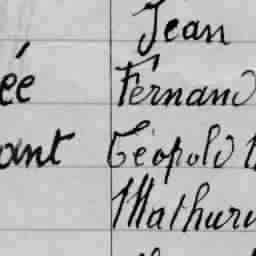 Jean
ée Fernand
ant Léopold